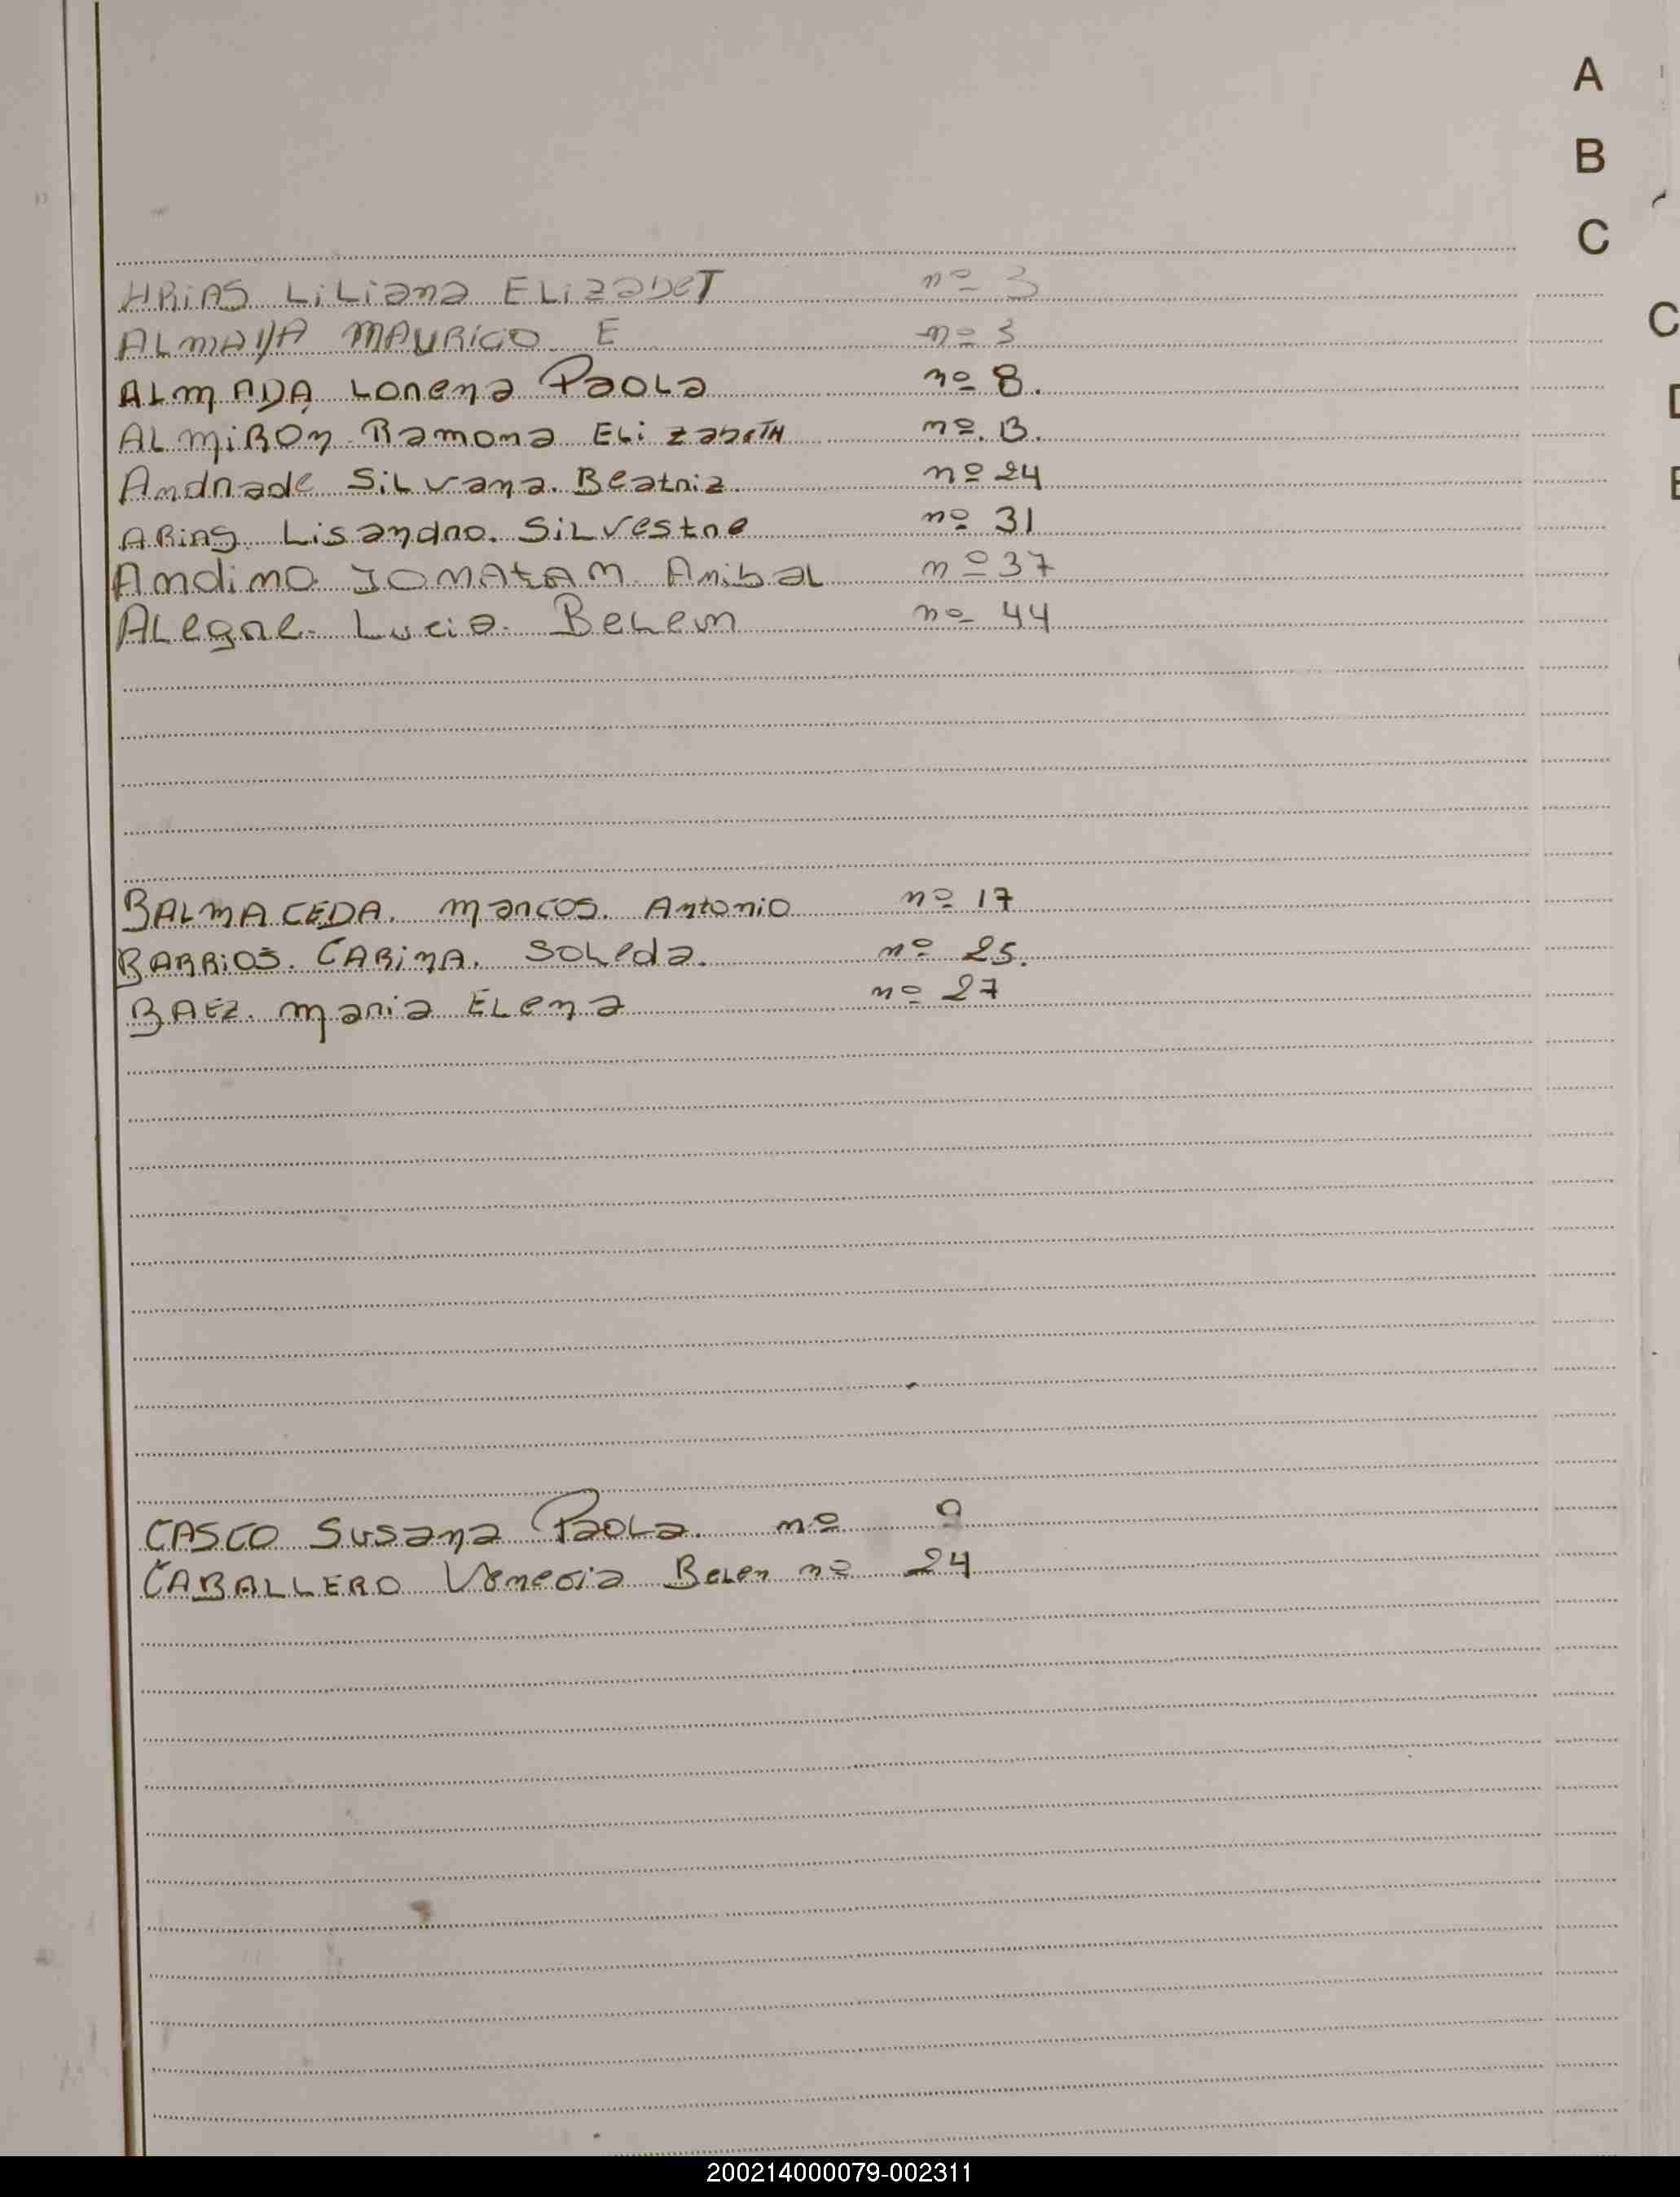 A
B
C
ARiAS LiLiana ELizabeT nº 3
ALMADA MAURiCiO E nº 3
ALMADA Lorena PaOLa nº 8.
ALMiRON Ramona ELizabeTH nº. 13.
Andrade SiLvana. Beatriz. nº 24
ARiAS. Lisandro. SiLvestre nº 31
Andino JONAtAN Anibal nº 37
ALegre. Lucia. BeLen nº 44
BALMACEDA. marcos. Antonio nº 17
BARRiOS. CARiNA. SOLeda. nº 25.
BAEZ. maria ELena nº 27
CASCO Susana PaOLa. nº 9
CABALLERO Belen nº 24
200214000079-002311